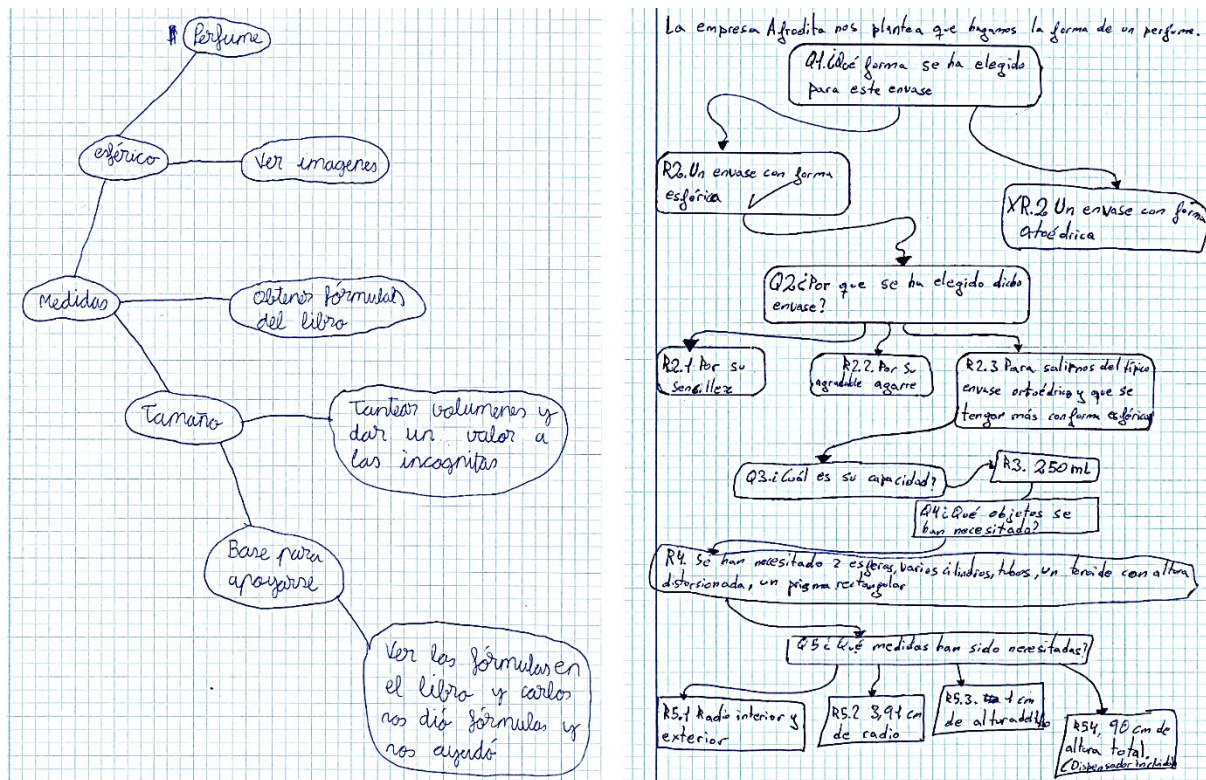 Perfume
esférico
Ver imagenes
Medidas
Obtener fórmulas
del libro
Tamaño
Tantear volumenes y
dar un valor a
las incognitas
Base para
apoyarse
Ver las fórmulas en
el libro y carlos
nos dió fórmulas y
nos ayudó
La empresa Afrodita nos plantea que hagamos la forma de un perfume.
Q1.¿Qué forma se ha elegido
para este envase
R2.Un envase con forma
esférica
XR.2 Un envase con forma
ortoédrica
Q2¿Por que se ha elegido dicho
envase?
R2.1 Por su
sencillez
R2.2. Por su
agradable agarre
R2.3 Para salirnos del típico
envase ortoédrico y que se
tengan más con forma esférica
Q3.¿Cuál es su capacidad?
R3. 250 mL
Q4¿Qué objetos se
han necesitado?
R4. Se han necesitado 2 esferas, varios cilindros, tubos, un toroide con altura
distorsionada, un prisma rectangular
Q5¿Qué medidas han sido necesitadas?
R5.1 Radio interior y
exterior
R5.2 3,91 cm
de radio
R5.3. 1 cm
de altura
R5.4. 90 cm de
altura total.
(Dispensador incluido)